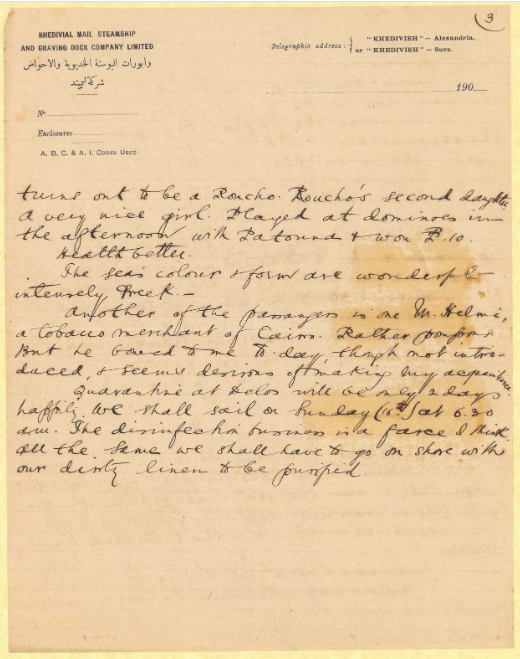 3
KHEDIVIAL MAIL STEAMSHIP
AND GRAVING DOCK COMPANY LIMITED
وابورات البوستة الخديوية والاحواض
شركة ليمتد
Telegraphic address: { "KHEDIVIEH" — Alexandria.
or "KHEDIVIEH" — Suez.
190
No
Enclosures
A. B. C. & A. I. CODES USED
turns out to be a Roucho. Roucho's second daughter
a very nice girl. Played at dominoes in
the afternoon with & won P. 10.
Health better.
The sea's colour & form are wonderful -
intensely Greek. -
Another of the passengers is one M. Helmi,
a tobacco merchant of Cairo. Rather pompous
But he bowed to me to day, though not intro-
duced, & seems desirous of making my acquaintance.
Quarantine at Delos will be only 2 days
happily. We shall sail on Sunday (16th) at 6.30
a.m. The disinfection business is a farce I think.
All the same we shall have to go on shore with
our dirty linen to be purified.